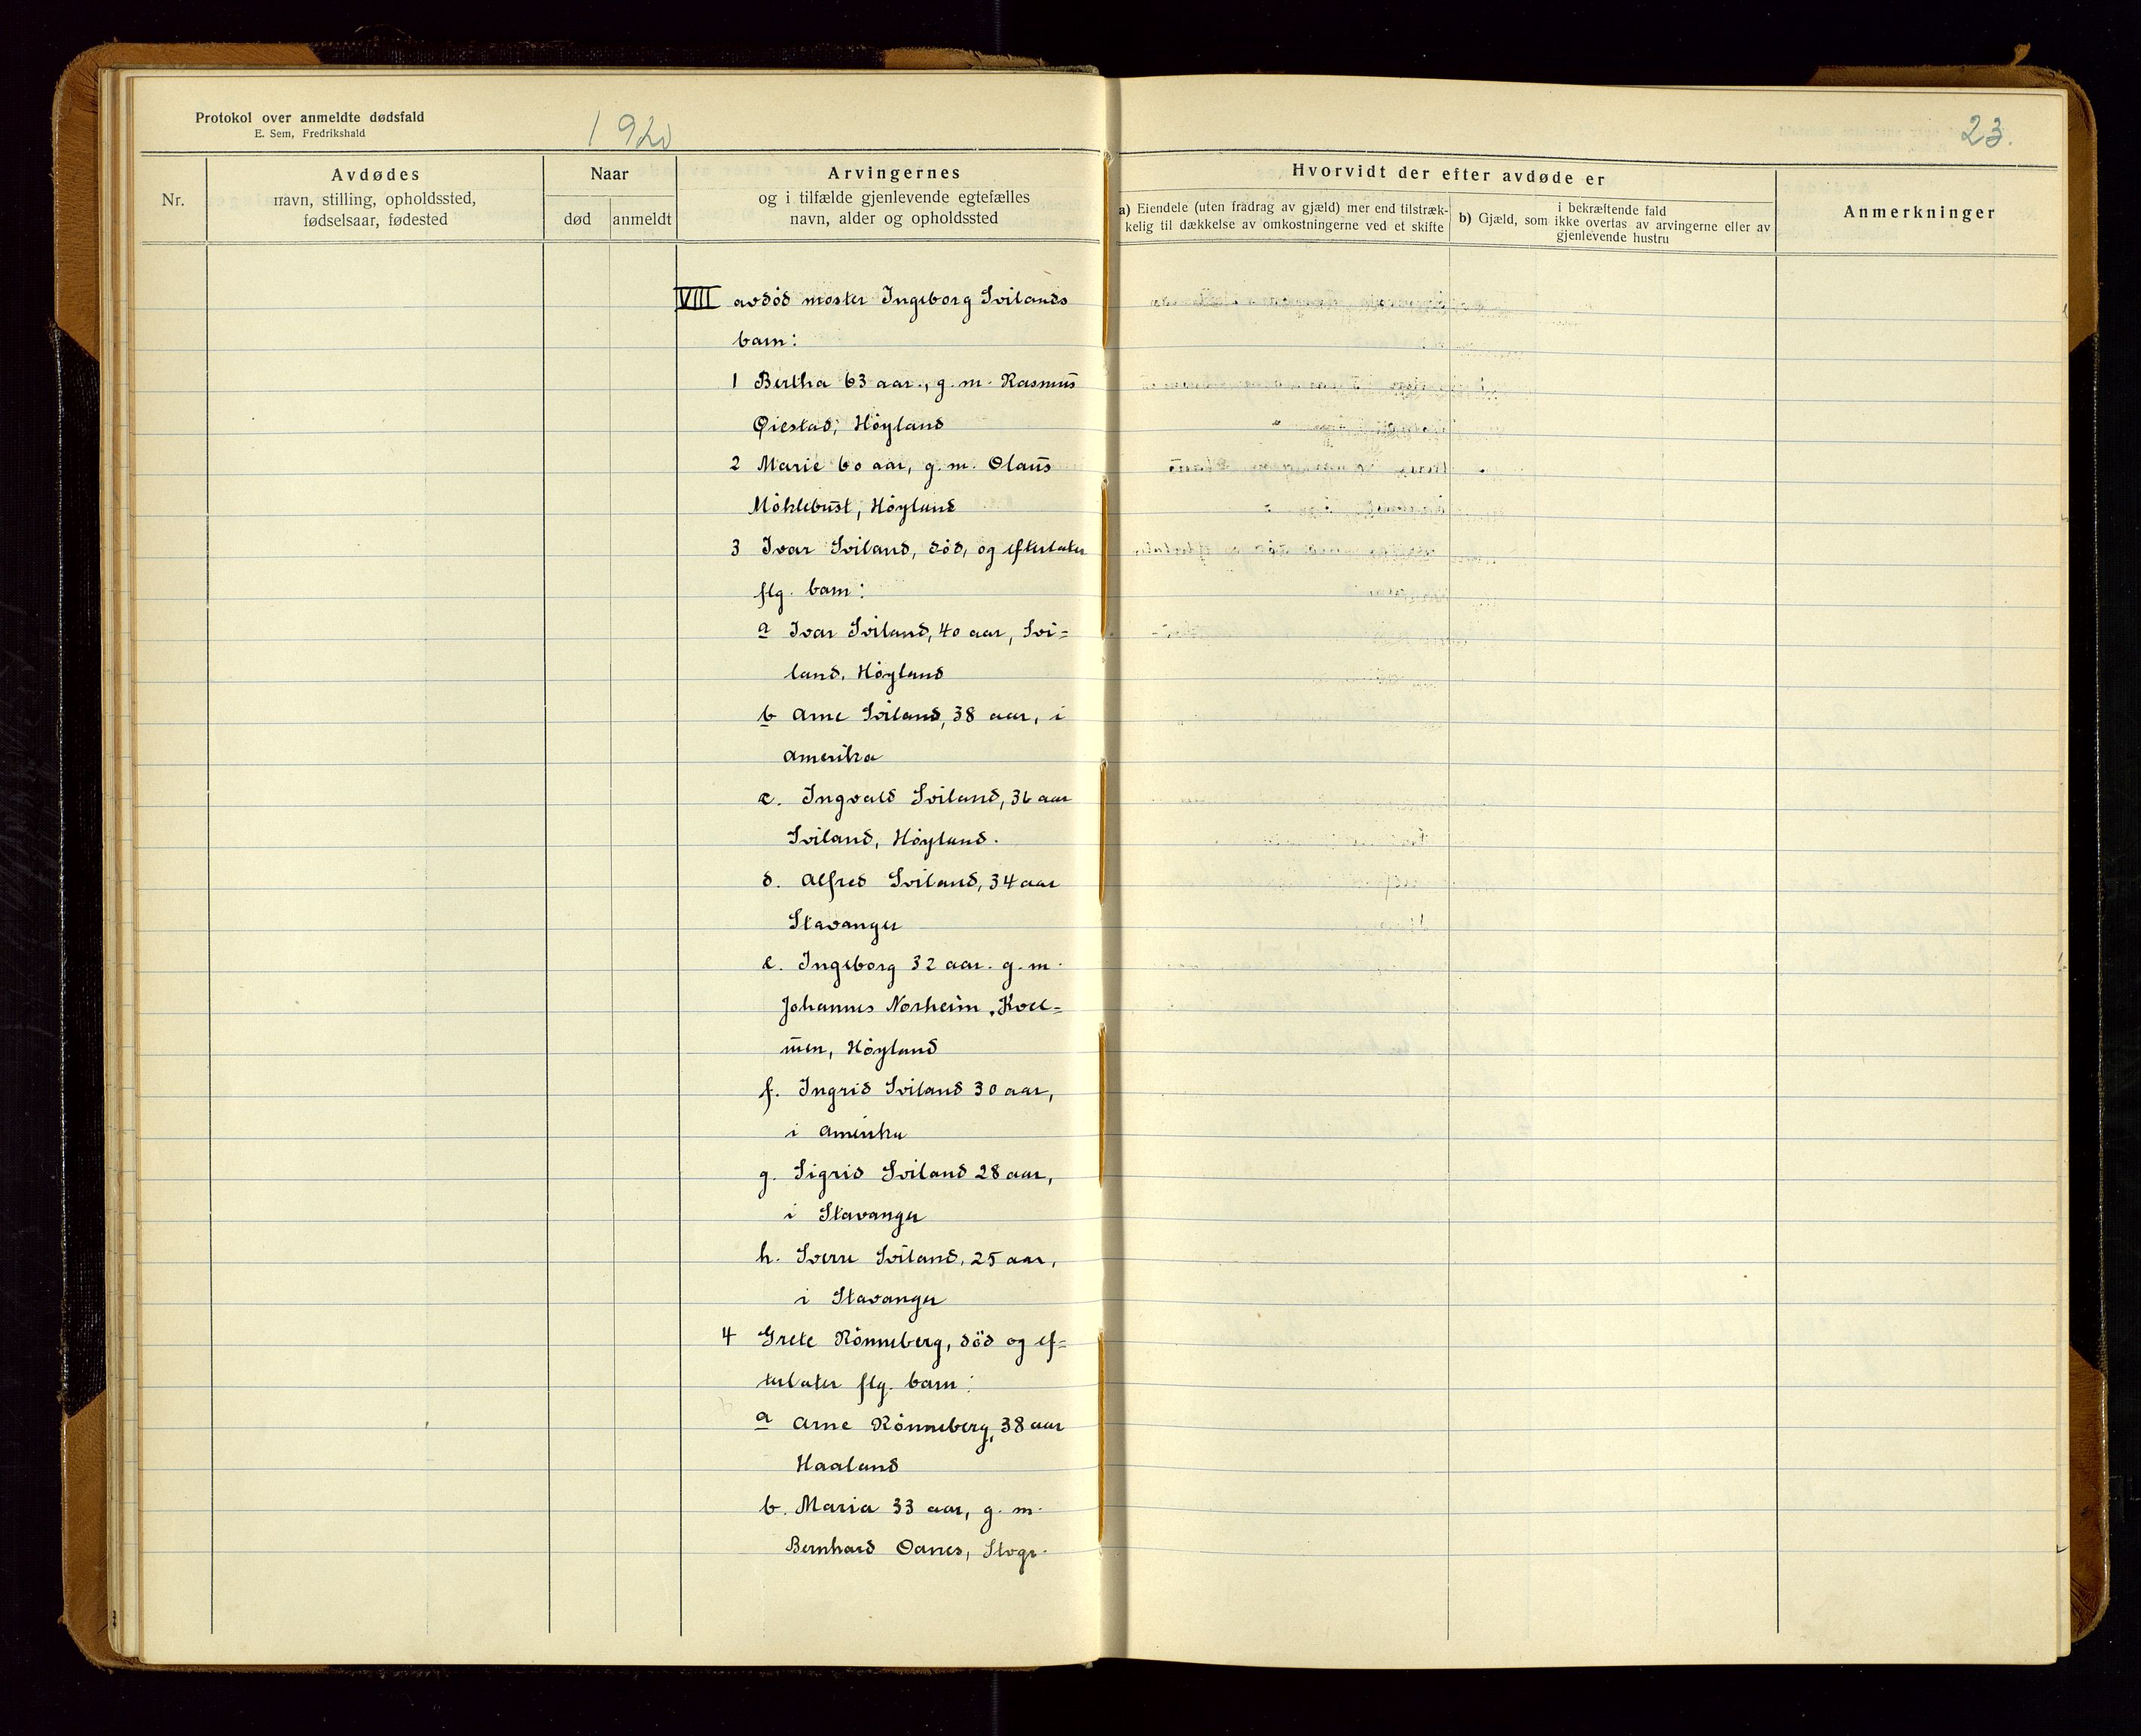 Protokol over anmeldte dødsfald
E. Sem, Fredrikshald
1920
23.
Nr.
Avdødes
navn, stilling, opholdssted,
fødselsaar, fødested
Naar
død anmeldt
Arvingernes
og i tilfælde gjenlevende egtefælles
navn, alder og opholdssted
Hvorvidt der efter avdøde er
a) Eiendele (uten fradrag av gjæld) mer end tilstræk-
kelig til dækkelse av omkostningerne ved et skifte
i bekræftende fald
b) Gjæld, som ikke overtas av arvingerne eller av
gjenlevende hustru
Anmerkninger
VIII avdöd moster Ingeborg Svilands
barn:
1 Bertha 63 aar., g. m. Rasmus
Øiestad, Höyland
2 Marie 60 aar, g. m. Olaus
Möklebust, Höyland
3 Ivar Sviland, död, og efterlater
flg. barn:
a Ivar Sviland, 40 aar, Svi=
land, Höyland
b Arne Sviland, 38 aar, i
Amerika
c. Ingvald Sviland, 36 aar
Sviland, Höyland.
d. Alfred Sviland, 34 aar
Stavanger
e. Ingeborg 32 aar. g. m.
Johannes Norheim, Koel=
men, Höyland
f. Ingrid Sviland 30 aar,
i Amerika
g. Sigrid Sviland 28 aar,
i Stavanger
h. Sverre Sviland, 25 aar,
i Stavanger
4 Grete Rönneberg, död og ef=
terlater flg. barn:
a Arne Rönneberg, 38 aar
Haaland
b. Maria 33 aar, g. m.
Bernhard Oanes, Stvgr.